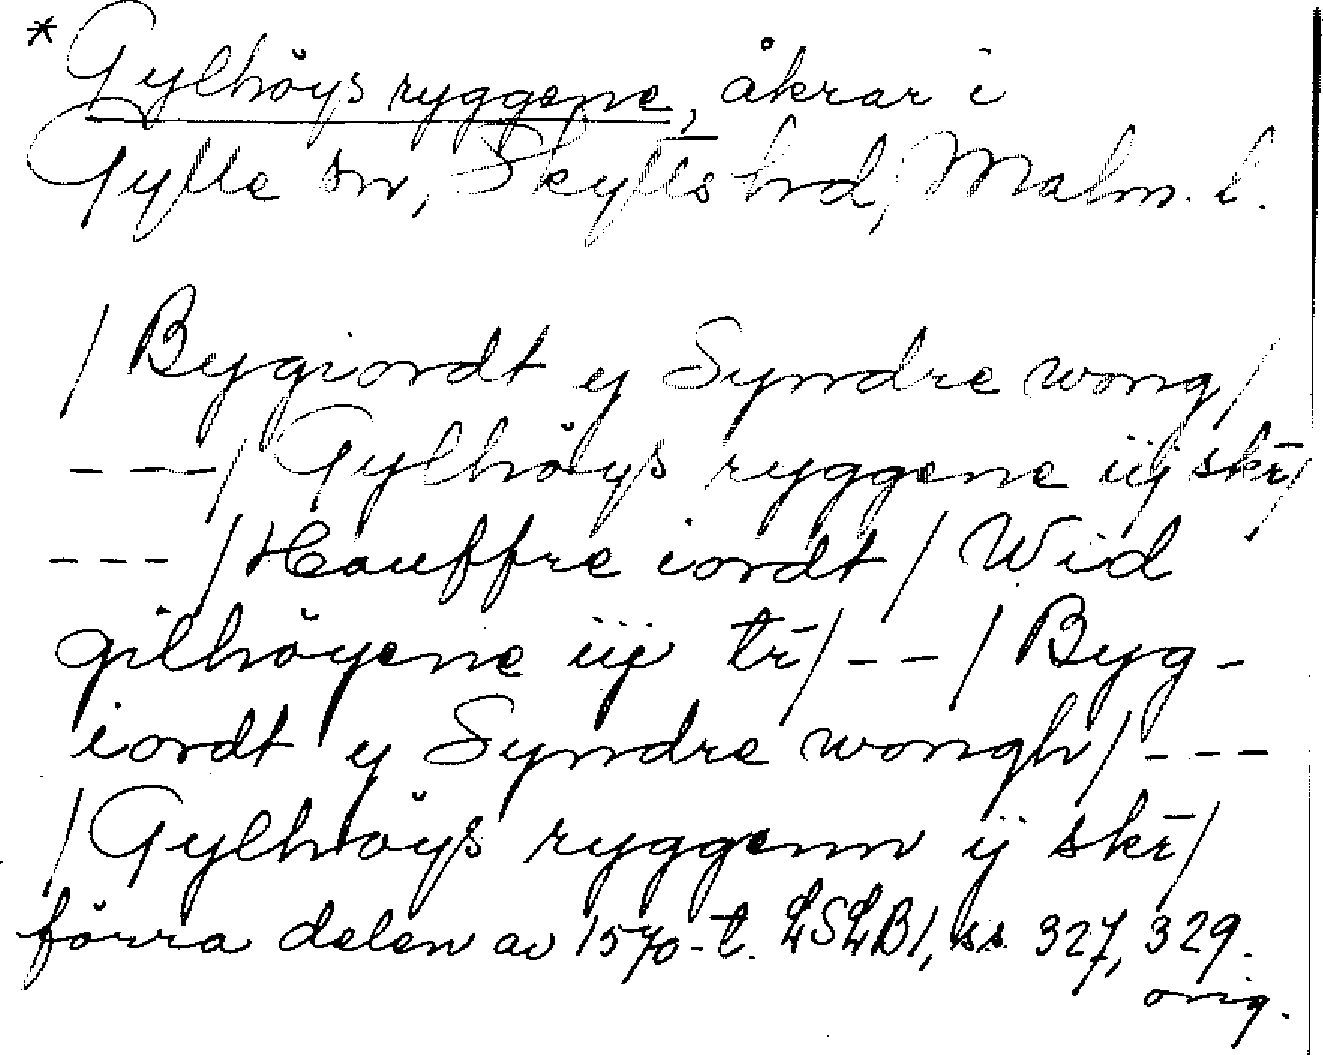 * Gylhöys ryggene, åkrar i
Gylle sn, Skytts hd, Malm. l.
/ Bygiordt y Syndre wong/
---/ Gylhöys ryggene iij skr̄/
---/ Hauffre iordt / Wid
gilhöyene iij tr̄/--/ Byg-
iordt y Syndre wongh/---
/ Gylhöys ryggenn ij skr̄/
förra delen av 1570-t. LSLB1, ss. 327, 329.
orig.